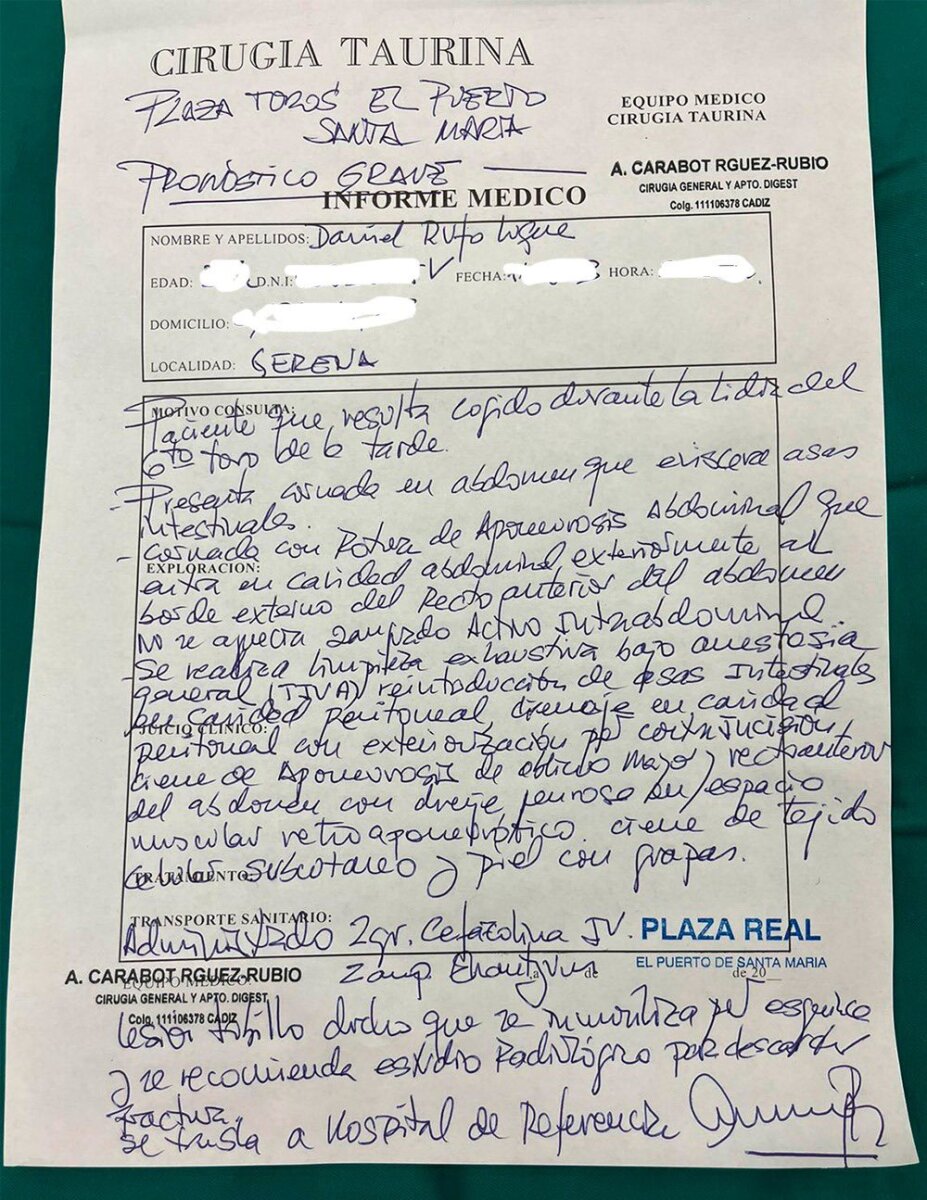 CIRUGIA TAURINA
PLAZA TOROS EL PUERTO
SANTA MARIA
EQUIPO MEDICO
CIRUGIA TAURINA
PRONÓSTICO GRAVE
A. CARABOT RGUEZ-RUBIO
CIRUGIA GENERAL Y APTO. DIGEST
Colg. 111106378 CADIZ
INFORME MEDICO
NOMBRE Y APELLIDOS: Daniel Rufo Luque
EDAD: D.N.I: V FECHA: HORA:
DOMICILIO:
LOCALIDAD: GERENA
MOTIVO CONSULTA:
Paciente que resulta cogido durante la lidia del
6to toro de la tarde.
- Presenta cornada en abdomen que eviscera asas
intestinales.
- Cornada con Rotura de Aponeurosis Abdominal que
EXPLORACION:
entra en cavidad abdominal, exteriormente al
borde externo del Recto anterior del abdomen
No se aprecia sangrado Activo Intraabdominal
- Se realiza limpieza exhaustiva bajo anestesia
general (TIVA) reintroducción de asas Intestinales
en cavidad Peritoneal, drenaje en cavidad
JUICIO CLÍNICO:
peritoneal con exteriorización por
cierre de Aponeurosis de oblicuo mayor y recto anterior
del abdomen con drenaje penrose en espacio
muscular retroaponeurótico. cierre de tejido
TRATAMIENTO:
celular subcutaneo y piel con grapas.
TRANSPORTE SANITARIO:
Administrado 2gr. Cefazolina IV.
PLAZA REAL
EL PUERTO DE SANTA MARIA
a de de 20
A. CARABOT RGUEZ-RUBIO
EQUIPO MEDICO:
CIRUGIA GENERAL Y APTO. DIGEST
Colg. 111106378 CADIZ
Lesion tobillo dicho que se inmoviliza por esguince
y se recomienda estudio Radiológico para descartar
fractura.
se trasla a Hospital de Referencia